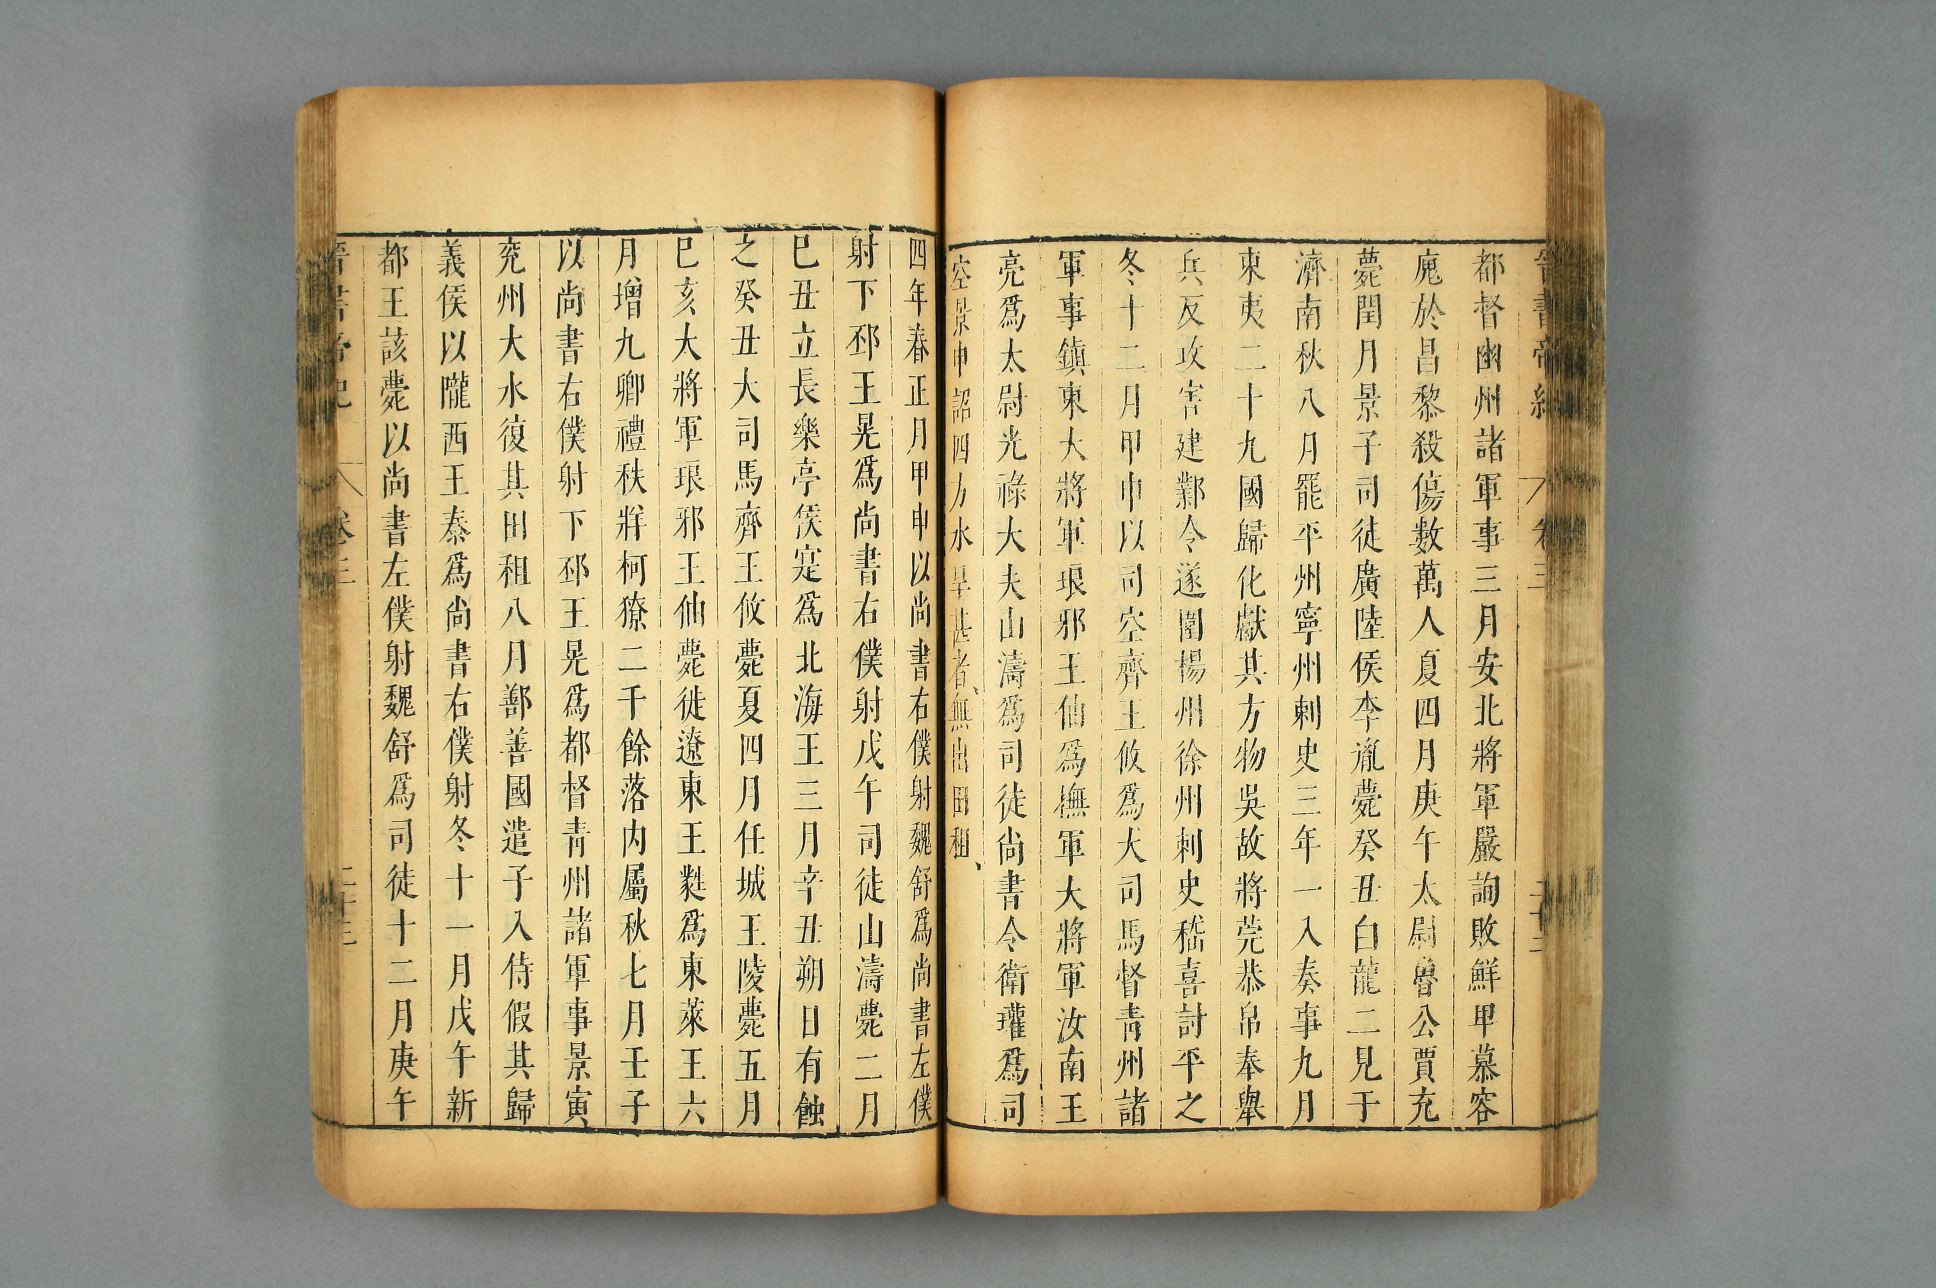 晉書帝紀 卷三
都督幽州諸軍事三月安北將軍嚴詢敗鮮卑慕容
廆於昌黎殺傷數萬人夏四月庚午太尉魯公賈充
薨閏月景子司徒廣陸侯李胤薨癸丑白龍二見于
濟南秋八月罷平州寧州刺史三年一入奏事九月
東夷二十九國歸化獻其方物吳故將莞恭帛奉舉
兵反攻害建鄴令遂圍楊州徐州刺史嵇喜討平之
冬十二月甲申以司空齊王攸為大司馬督青州諸
軍事鎮東大將軍琅邪王伷為撫軍大將軍汝南王
亮為太尉光祿大夫山濤為司徒尚書令衛瓘為司
空景申詔四方水旱甚者無出田租
四年春正月甲申以尚書右僕射魏舒為尚書左僕
射下邳王晃為尚書右僕射戊午司徒山濤薨二月
巳丑立長樂亭侯寔為北海王三月辛丑朔日有蝕
之癸丑大司馬齊王攸薨夏四月任城王陵薨五月
巳亥大將軍琅邪王伷薨徙遼東王蕤為東萊王六
月增九卿禮秩牂柯獠二千餘落內屬秋七月壬子
以尚書右僕射下邳王晃為都督青州諸軍事景寅
兖州大水復其田租八月鄯善國遣子入侍假其歸
義侯以隴西王泰為尚書右僕射冬十一月戊午新
都王該薨以尚書左僕射魏舒為司徒十二月庚午
卷三 二十三